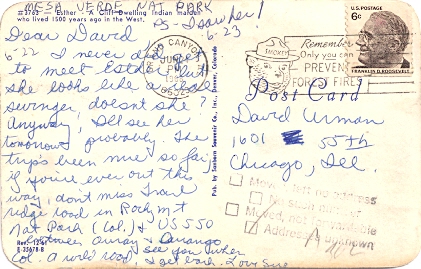 MESA VERDE NAT PARK
S-3763 — Esther - A Cliff Dwelling Indian maiden
who lived 1500 years ago in the West.
PS - I saw her!
6-23
Dear David
6-22 I never did get
to meet Esther, but
she looks like a real
swinger, doesn't she?
Anyway, I'll see her
tomorrow probably. The
trip's been nice so far,
if you're ever out this
way, don't miss Trail
ridge road in Rocky Mt
Nat Park (Col.) & US 550
between Ouray & Durango
Col. a wild road, see you when
I get back. Love Sue
Rev. 12-67
E-35678-B
Pub. by Sanborn Souvenir Co., Inc., Denver, Colorado
CANYON
JUN
PM
Remember
Only you can
PREVENT
FOREST FIRES
SMOKEY
U.S. POSTAGE
6¢
FRANKLIN D. ROOSEVELT
Post Card
David Urman
1601 55th
Chicago, Ill.
Moved, left no address
No such number
Moved, not forwardable
Addressee unknown